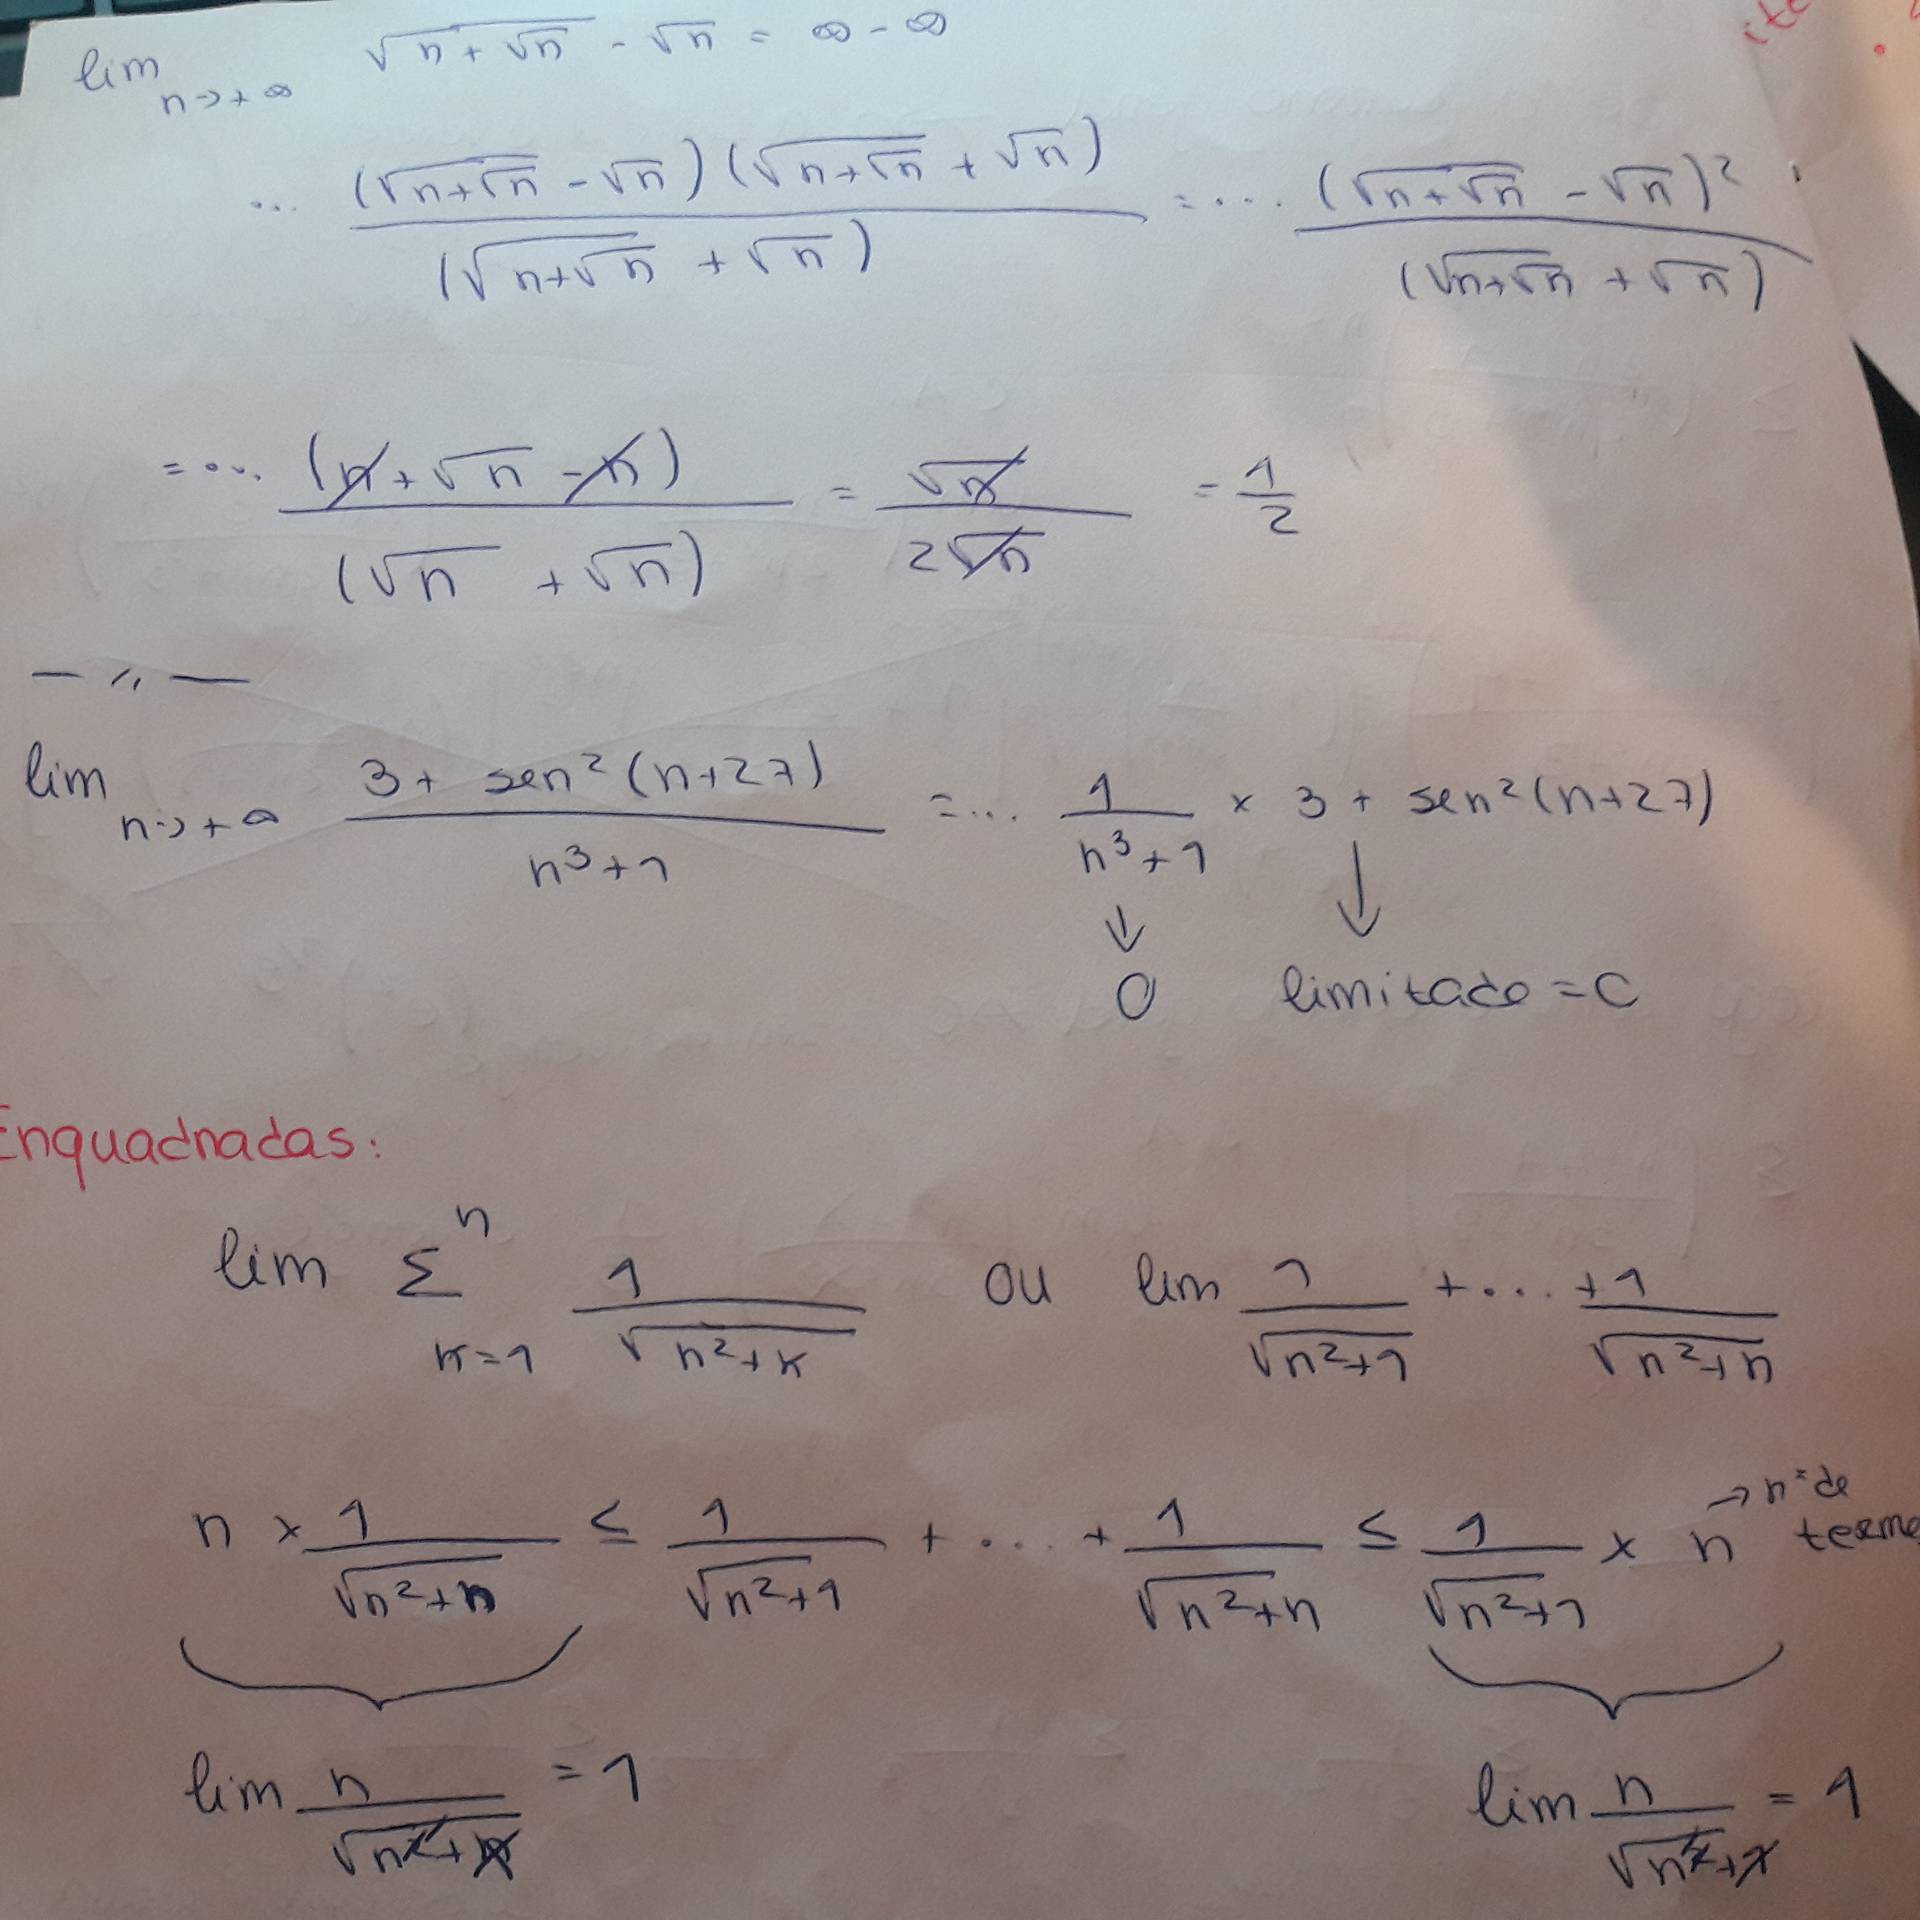 lim n→+∞ √(n+√n) - √n = ∞ - ∞
... (√(n+√n) - √n)(√(n+√n) + √n) / (√(n+√n) + √n) = ... (√(n+√n) - √n)² / (√(n+√n) + √n)
= ... (n + √n - n) / (√n + √n) = √n / 2√n = 1/2
— " —
lim n→+∞ 3 + sen²(n+27) / n³+1 = ... 1/(n³+1) × 3 + sen²(n+27)
↓ ↓
0 limitado = C
Enquadradas:
lim Σ n k=1 1/√(n²+k) ou lim 1/√(n²+1) + ... + 1/√(n²+n)
n × 1/√(n²+n) ≤ 1/√(n²+1) + ... + 1/√(n²+n) ≤ 1/√(n²+1) × n → nº de
lim n/√(n²+n) = 1 lim n/√(n²+1) = 1